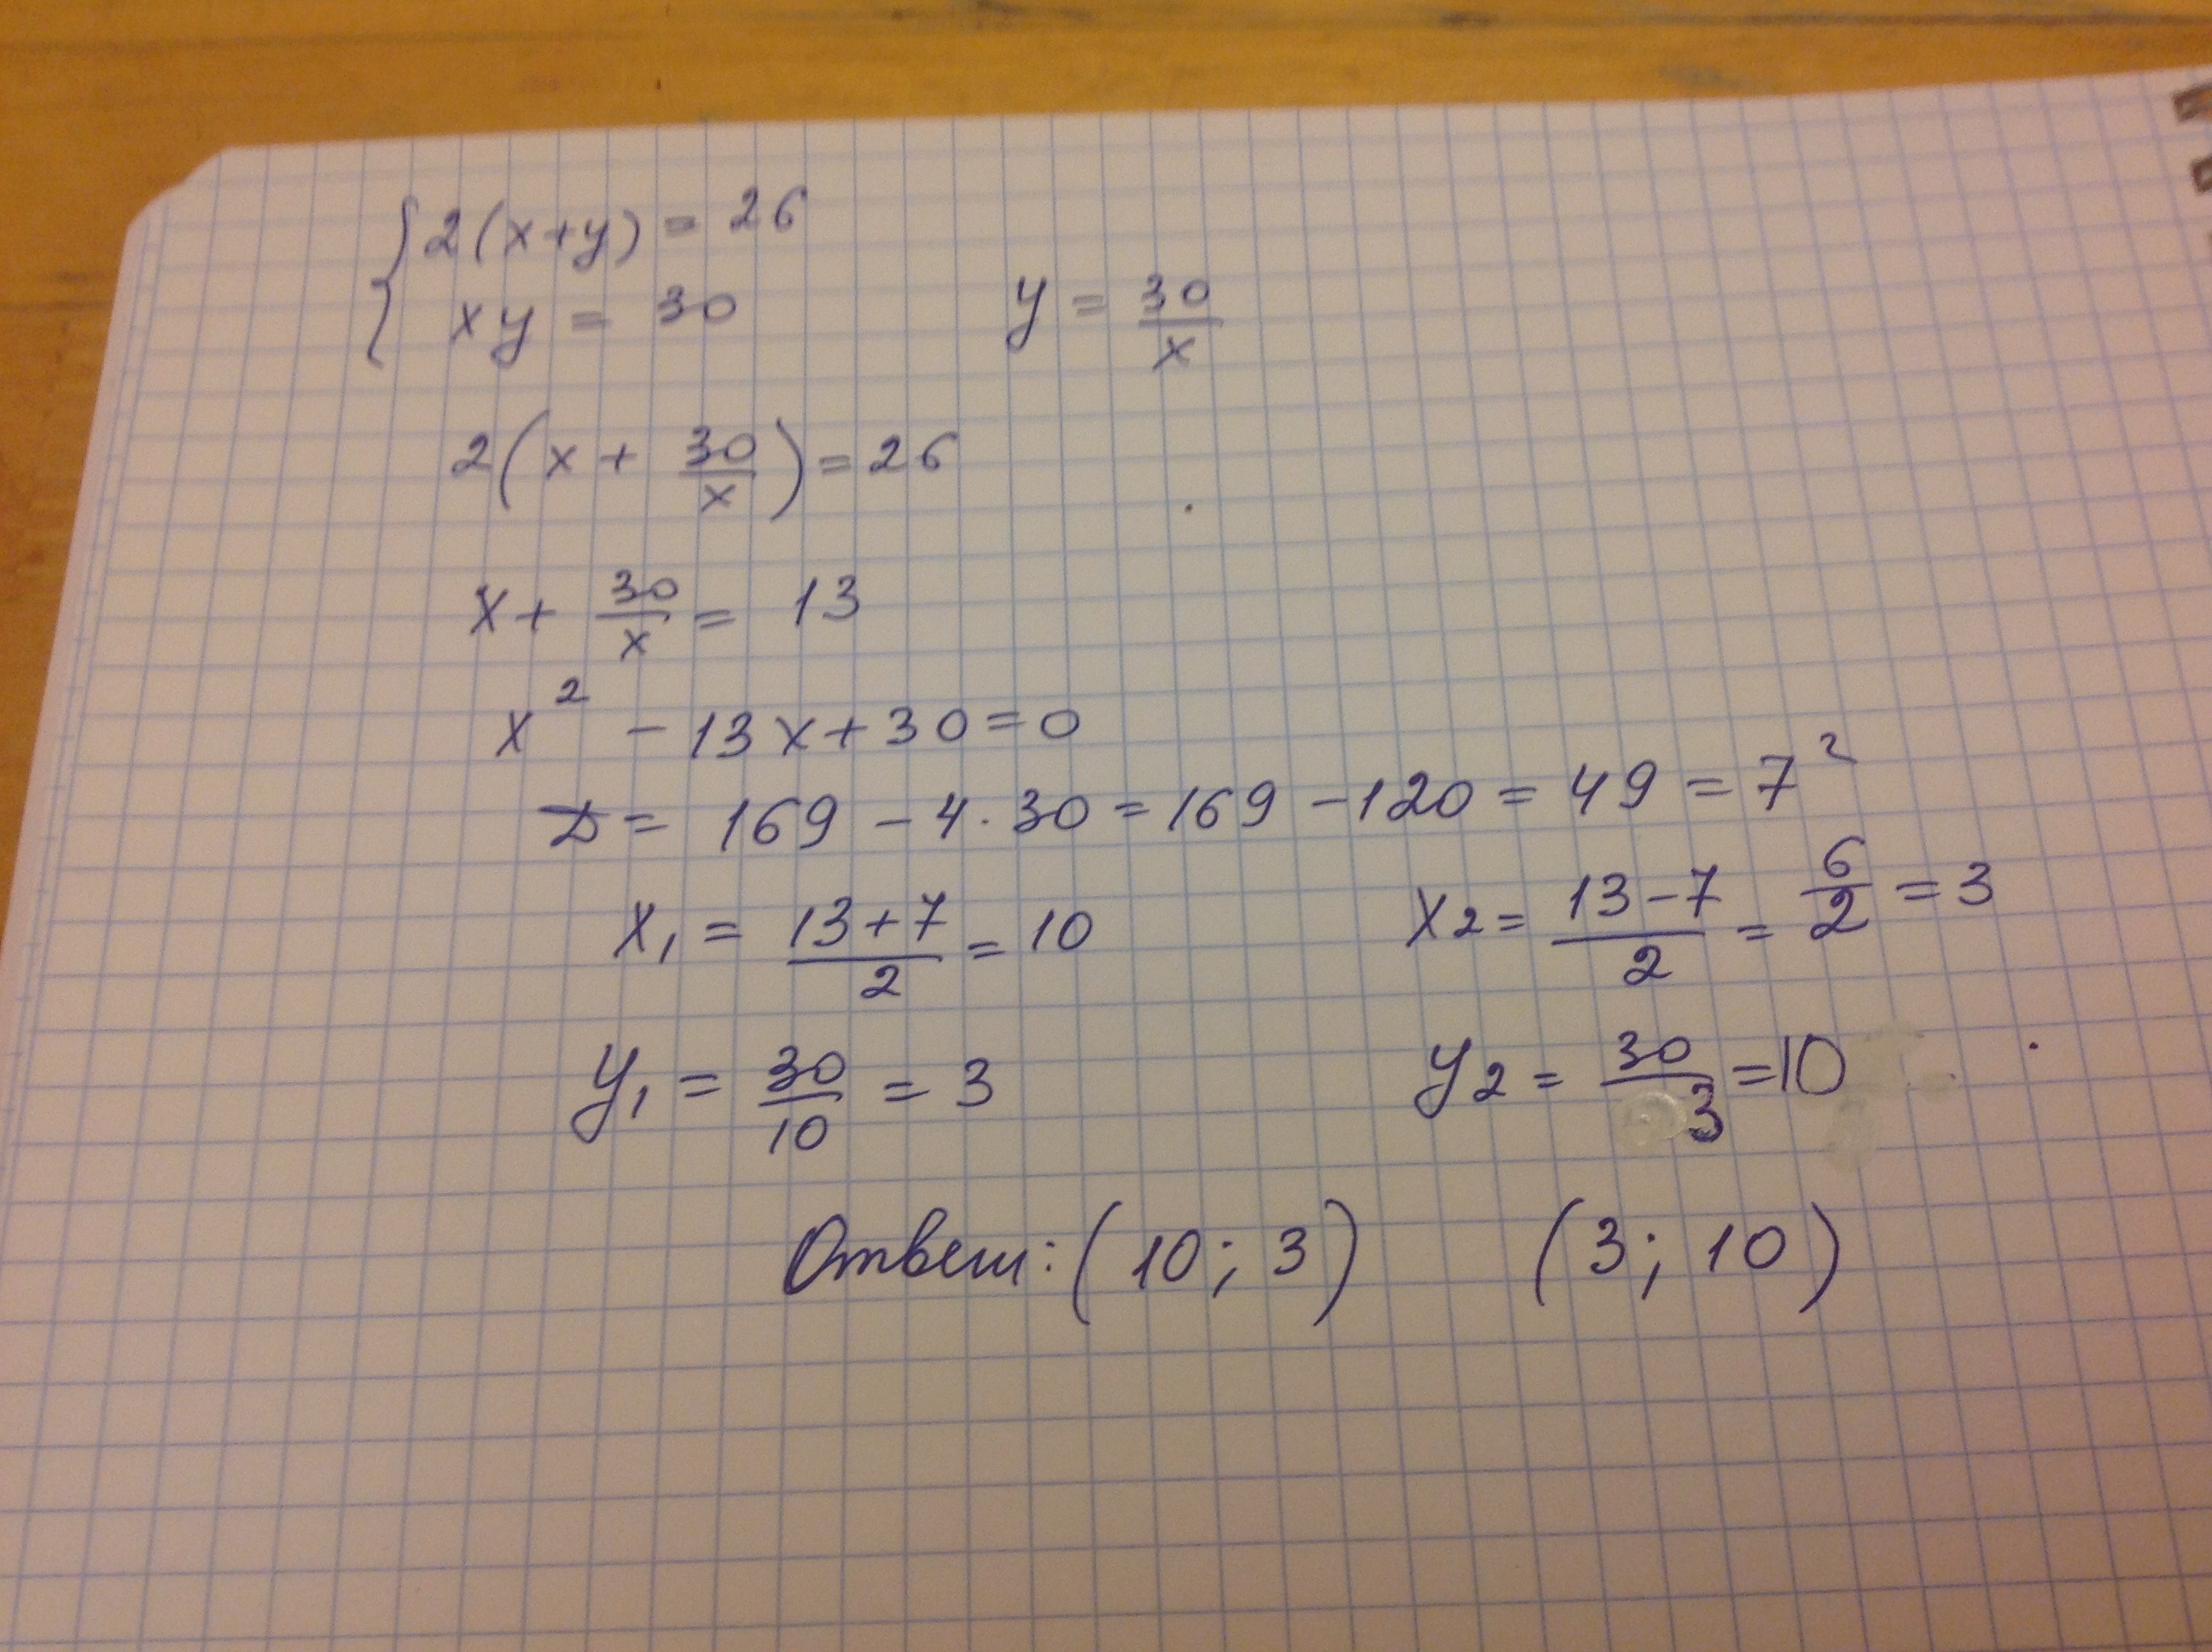 {2(x+y) = 26
xy = 30    y = 30/x
2(x + 30/x) = 26
x + 30/x = 13
x² - 13x + 30 = 0
D = 169 - 4·30 = 169 - 120 = 49 = 7²
x₁ = (13+7)/2 = 10    x₂ = (13-7)/2 = 6/2 = 3
y₁ = 30/10 = 3    y₂ = 30/3 = 10
Ответ: (10; 3)    (3; 10)